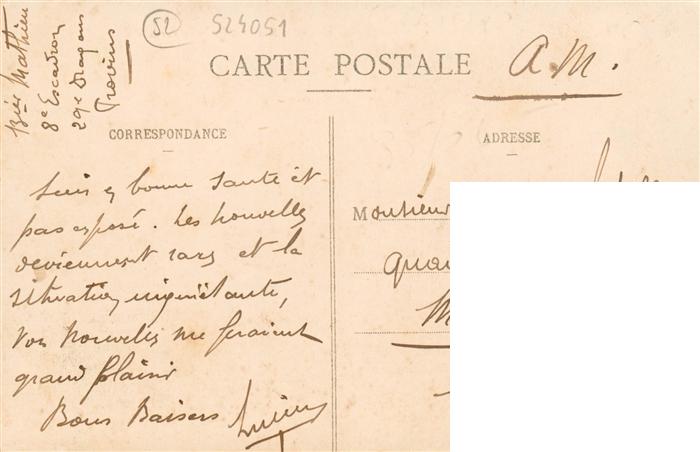 Bier Mathieu
8e Escadron
29e Dragons
Provins
52
524051
CARTE POSTALE
A.M.
CORRESPONDANCE
ADRESSE
Suis en bonne santé et
pas exposé. Les nouvelles
deviennent rares et la
situation inquiétante,
Vos nouvelles me feraient
grand plaisir
Bons Baisers Lucien
Monsieur
Quai